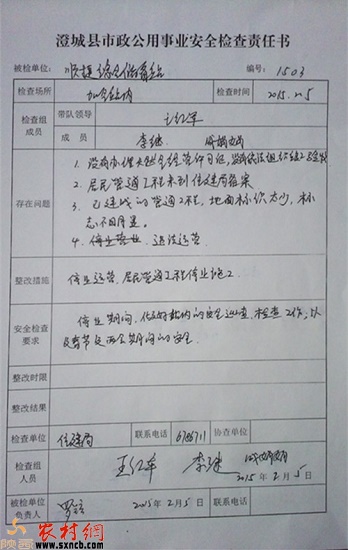 澄城县市政公用事业安全检查责任书
被检单位： 编号：1503
检查场所 加气站内 检查时间 2015.2.5
检查组成员 带队领导 王红军
成员 李继
存在问题
1. 没有办理天然气经营许可证，
2. 居民管道工程未到住建局备案
3. 已建成的管道工程，地面标识太少，标
志不明显。
4. 停业营业 违法运营.
整改措施 停业运营，居民管道工程停业施工
安全检查要求
停业期间，做好站内的安全巡查、检查工作，以
及春节及两会期间的安全.
整改时限
整改结果
检查单位 住建局 联系电话 6786711 协查单位
检查组人员 王红军 李继
2015年2月5日
被检单位负责人 2015年2月5日 联系电话
陕西 农村網
www.sxncb.com